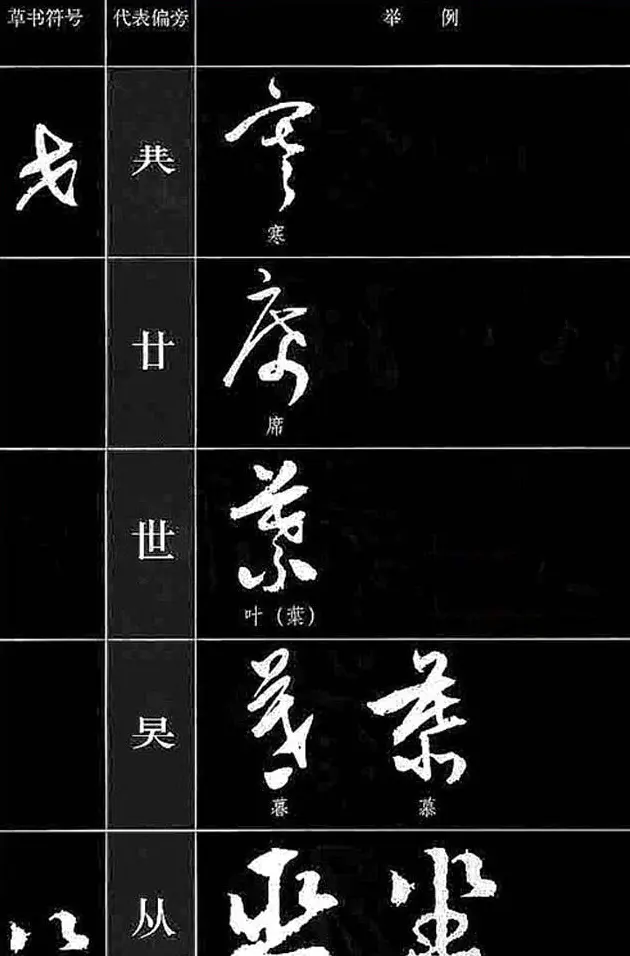 草书符号 代表偏旁 举 例
共
寒
廿
席
世
叶（葉）
昊
暮 慕
从